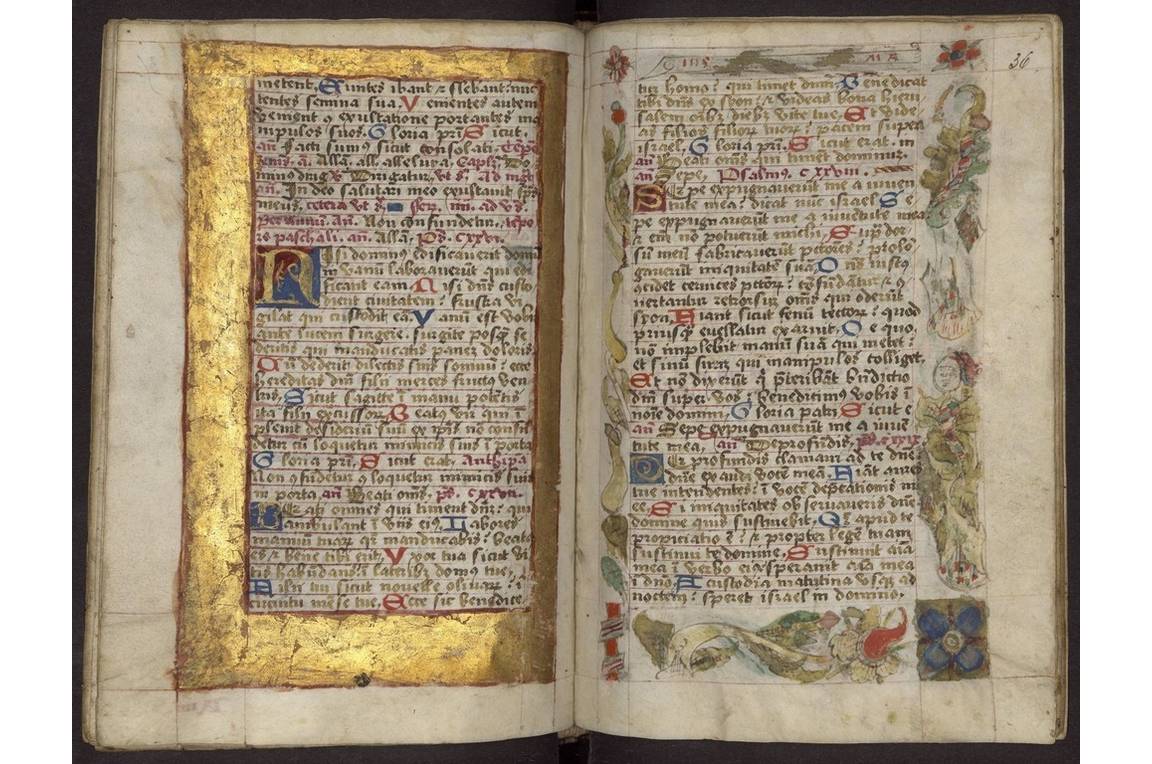 metent. Euntes ibant ⁊ flebant: mit
tentes semina sua. Venientes autem
venient cū exultatione portantes ma
nipulos suos. Gloria pr̄i. Sicut.
an̄. Facti sumus sicut consolati. Tēpe
Capl̄m. Do
minus
an̄. In deo salutari meo exultavit sps̄
meus.
an̄. Non confundetur. tempo
re paschali. an̄. Allā. Ps. cxxvi.
Nisi dominus edificaverit domū
in vanū laboraverūt qui edi
ficant eam. Nisi dn̄s custo
dierit civitatem: frustra vi
gilat qui custodit eā. Vanū est vobis
ante lucem surgere: surgite postq̄ se
deritis qui manducatis panem doloris.
Cū dederit dilectis suis somnū: ecce
hereditas dn̄i filii merces fructꝰ ven
tris. Sicut sagitte ī manu potētis
ita filii excussorꝝ. Beatus vir qui ī
plevit desideriū suū ex ip̄is: nō confū
detur cū loquetur inimicis suis ī porta.
Gloria pr̄i. Sicut erat. antiphā
Non cōfūdetur cū loquetur inimicis suis
in porta. an̄. Beati om̄s. ps. cxxvii.
Beati om̄nes qui timent dn̄m: qui
ambulant ī viis eiꝰ. Labores
manuū tuarꝝ qr̄ manducabis: beatꝰ
es ⁊ bene tibi erit. Vxor tua sicut vi
tis habūdans: ī lateribꝫ domus tue.
Filii tui sicut novelle olivarꝝ: ī
circuitu mēse tue. Ecce sic benedice
36
tur homo: qui timet dn̄m. Benedicat
tibi dn̄s ex syon: ⁊ videas bona hieru
salem om̄ibꝫ diebꝫ vite tue. Et vide
as filios filiorꝝ tuorꝝ: pacem super
israel. Gloria pr̄i. Sicut erat. in
an̄. Beati om̄s qui timet dominum.
an̄. Sepe. Psalmus. cxxviii.
Sepe expugnaverūt me a iuven
tute mea: dicat nūc israel. Se
pe expugnaverūt me a iuvētute mea
⁊ em̄ nō potuerūt michi. Supra dor
sū meū fabricaverūt pctōres: prolō
gaverūt iniquitatē suā. Dn̄s iustꝰ
cōcidet cervices pctōrꝝ: cōfūdātur ⁊ cō
vertantur retrorsū om̄s qui oderūt
syon. Fiant sicut fenū tectorꝝ: quod
priusq̄ evellatur exaruit. De quo
nō implebit manū suā qui metet:
et sinū suū qui manipulos colliget.
Et nō dixerūt q̄ p̄teribāt bn̄dictio
dn̄i super vos: benediximus vobis ī
noīe domini. Gloria patri. Sicut e
an̄. Sepe expugnaverūt me a iuvē
tute mea. an̄. De profundis. Ps. cxxix
De profundis clamavi ad te dn̄e:
dn̄e exaudi vocē meā. Fiāt aures
tue intendentes: ī vocē dep̄cationis me
e. Si iniquitates observaveris dn̄e
domine quis sustinebit. Qr̄ apud te
propiciatio ē: ⁊ propter legē tuam
sustinui te domine. Sustinuit aīa
mea ī verbo eiꝰ: speravit aīa mea
ī dn̄o. A custodia matutina usqꝫ ad
noctem: speret israel in domino.